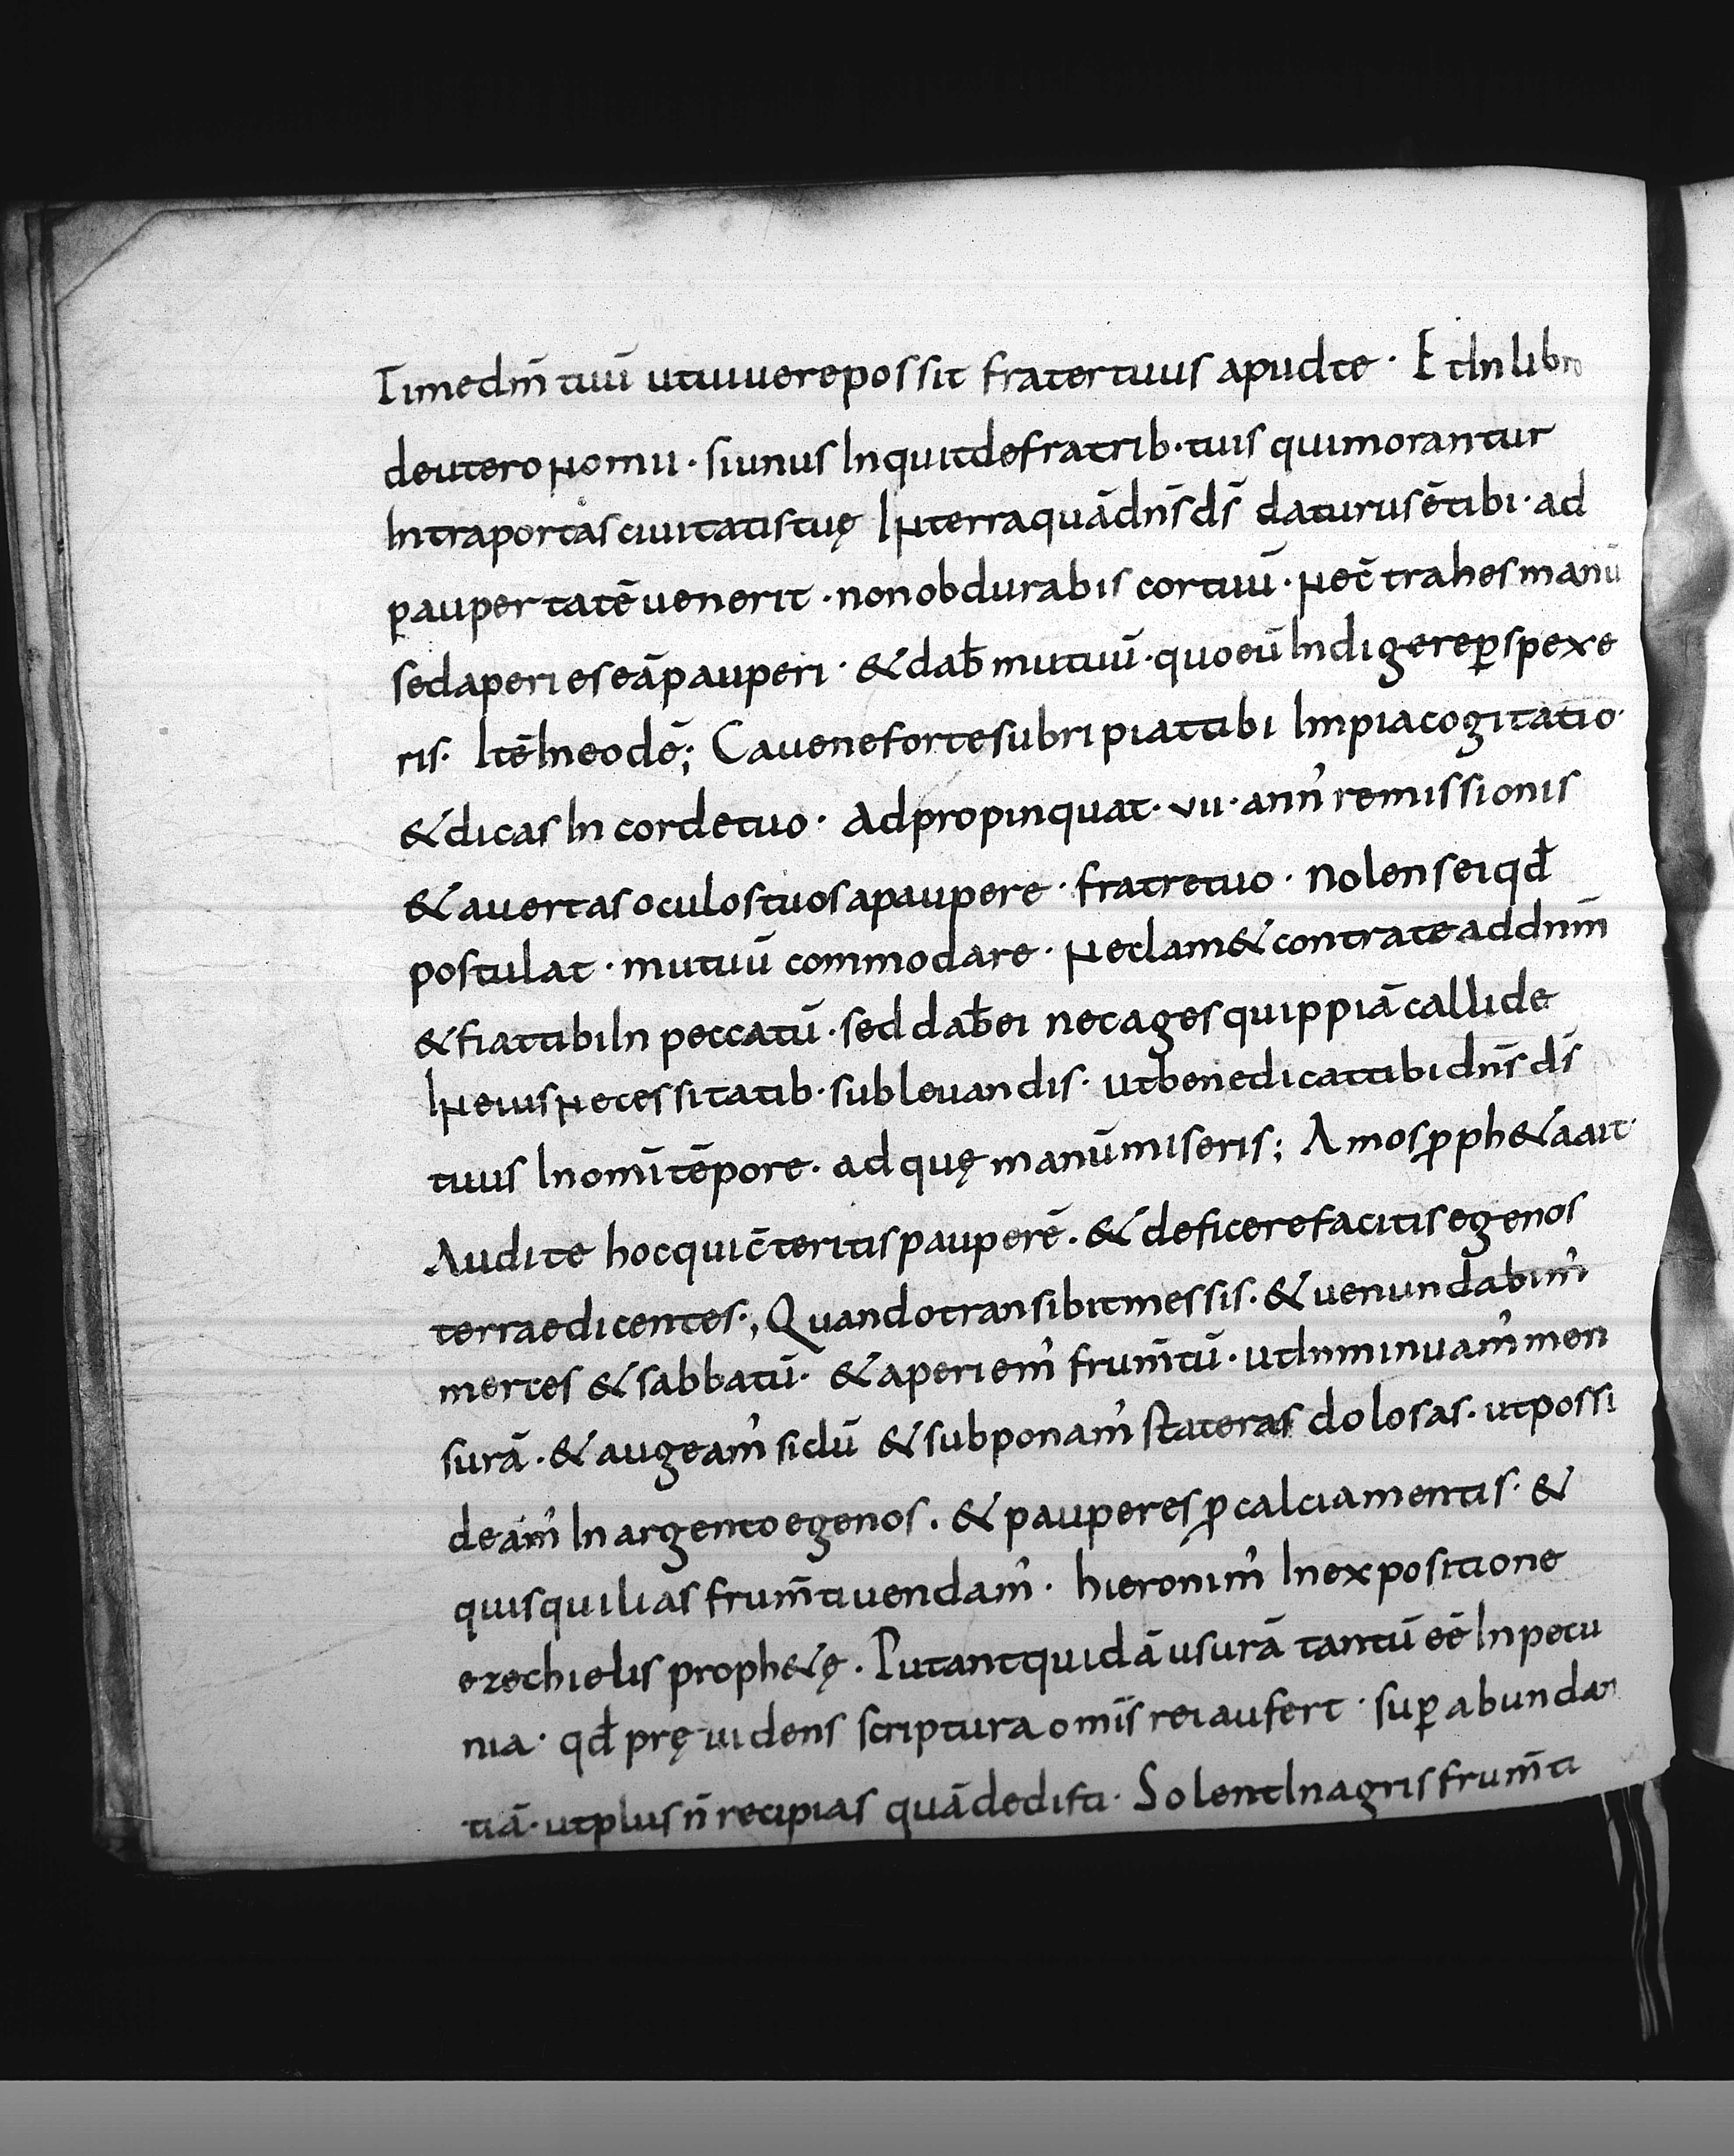 Timedm̄ tuū utuiuerepossit fratertuus apudte · EtIn libro
deuteronomii · siunus Inquitdefratrib· tuis quimorantur
Intraportas ciuitatistuę Interraquādn̄s ds̄ daturusētibi · ad
paupertatēuenerit · nonobdurabis cortuū · nec̄ trahesmanū
sedaperieseāpauperi · &dab̄ mutuū · quoeū Indigereꝑspexe
ris · Itē Ineodē; Cauenefortesubripiattibi Impiacogitatio ·
&dicas In cordetuo · Adpropinquat · vii · ann᾿ remissionis
&auertas oculostuosapaupere · fratretuo · nolenseiqd̄
postulat · mutuū commodare · neclam&contrateaddnm̄
&fiattibiIn peccatū · sed dab̄ei necagesquippiācallide
Ineiusnecessitatib· subleuandis · utbenedicattibidn̄s ds̄
tuus Inomī tēpore · ad quę manūmiseris; Amos ꝓph&aait ·
Audite hocquic̄teritispauperē · &deficerefacitisegenos
terraedicentes·; Quandotransibitmessis · &uenundabim᾿
merces &sabbatū · &aperiem᾿ frum̄tū · utInminuam᾿ men
surā · &augeam᾿ siclū &subponam᾿ stateras dolosas · utpossi
deam᾿ In argentoegenos · &pauperes ꝓcalciamentis · &
quisquilias frum̄tiuendam᾿ · hieronim᾿ Inexpositione
ezechielis proph&ę · Putantquidā usurā tantū eē Inpecu
nia · qd̄ pręuidens scriptura omīs reiaufert · suꝑabundan
tiā · utplus n̄ recipias quādedisti · SolentInagrisfrum̄ti